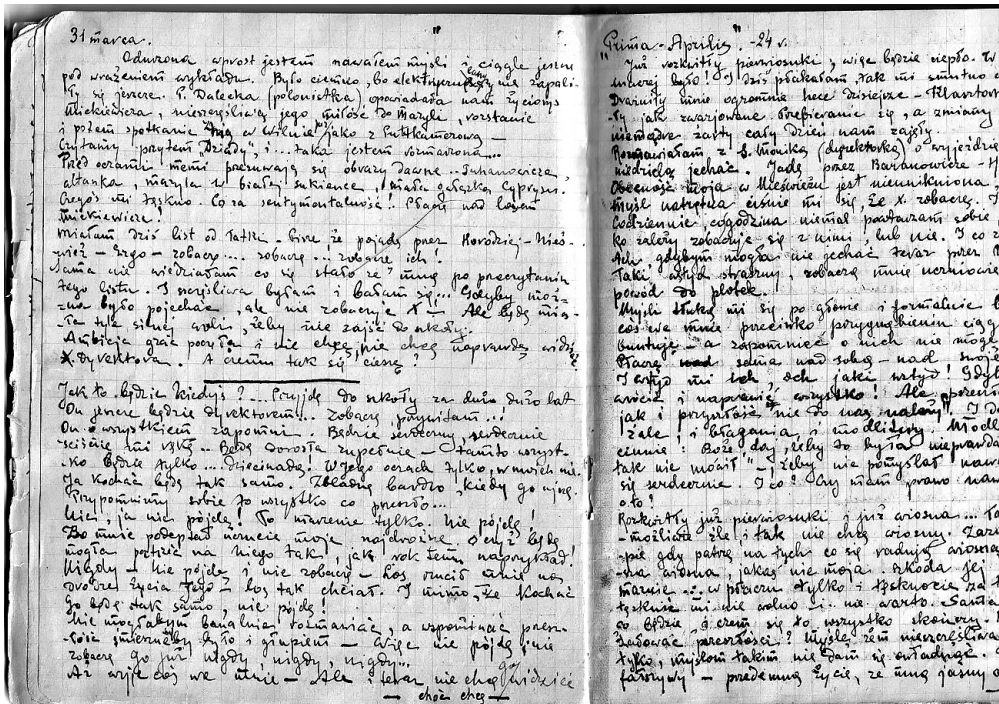 31 marca. "
Odurzona wprost jestem nawałem myśli i ciągle jestem
pod wrażeniem wykładu. Było ciemno, bo elektryczności nie zapali-
ły się jeszcze. P. Dalecka (polonistka) opowiadała nam życiorys
Mickiewicza, nieszczęśliwą jego miłość do Maryli, rozstanie
i potem spotkanie w Wilnie jako z Puttkamerową —
Czytamy przytem "Dziady", i... taka jestem rozmarzona...
Przed oczami memi przesuwają się obrazy dawne... Tuhanowicze,
altanka, Maryla w białej sukience, mała gałązka cyprysu.
Czegoś mi tęskno. Co za sentymentalność! Płaczę nad losem
Mickiewicza!
Miałam dziś list od Tatki - pisze że pojadę przez Horodziej - Nieś-
wież — Ergo — zobaczę... zobaczę... zobaczę ich!
Sama nie wiedziałam co się stało ze mną po przeczytaniu
tego listu. I szczęśliwa byłam i bałam się... Gdyby moż-
na było pojechać, ale nie zobaczyć X — Ale będę mia-
ła tyle silnej woli, żeby nie zajść do szkoły.
Ambicja grać poczęła i nie chcę, nie chcę naprawdę widzieć
X. dyrektora. A czemu tak się cieszę?
Jak to będzie kiedyś?... Przyjdę do szkoły za dużo dużo lat
On jeszcze będzie dyrektorem... zobaczę, przywitam...!
On o wszystkiem zapomni. Będzie serdeczny, serdecznie
uściśnie mi rękę.. Będę dorosła zupełnie — tamto wszyst-
ko będzie tylko... dziecinadą! W Jego oczach tylko, w moich nie.
Ja kochać będę tak samo. Zbladnę bardzo, kiedy go ujrzę.
Przypomnimy sobie to wszystko co przeszło...
Nie!, ja nie pójdę! To marzenie tylko. Nie pójdę!
Bo mnie podeptał uczucie moje najdroższe. O czyż będę
mogła patrzeć na Niego tak, jak rok temu naprzykład!
Nigdy — Nie pójdę i nie zobaczę — Los rzucił mnie na
drodze życia Jego — los tak chciał. I mimo, że kochać
Go będę tak samo, nie pójdę!
Nie mogłabym banalnie rozmawiać, a wspominać przesz-
łość śmiesznem było i głupiem — Więc nie pójdę i nie
zobaczę go już nigdy nigdy, nigdy...
Aż wyje coś we mnie — Ale i teraz nie chcę Go widzieć
— choć chcę —
"Prima-Aprilis" -24 r.
Już rozkwitły pierwiosnki, więc będzie ciepło. W
inaczej było! O! dziś płakałam, tak mi smutno
Drażniły mnie ogromnie hece dzisiejsze -
ły jak zwarjowane. Przebieranie się, a zmiany
niemądre żarty cały dzień nam zajęły.
Rozmawiałam z S. Moniką (dyrektorką) o wyjeździe
niedzielę jechać. Jadę przez Baranowicze - H
Obecność moja w Nieświeżu jest nieunikniona,
myśl natrętna ciśnie mi się, że X. zobaczę. I
Codziennie, cogodzina niemal powtarzam sobie
ko zależy zobaczyć się z nimi, lub nie. I co
Ach gdybym mogła nie jechać teraz przez
Taki wstyd straszny, zobaczą mnie uczniowie
powód do plotek!
Myśli tłuką mi się po głowie i formalnie
coś we mnie przeciwko przygnębieniu ciąg
buntuje — a zapomnieć o nich nie mogę
Płaczę sama nad sobą — nad swoje
I wstyd mi ich, och jaki wstyd! Gdyby
wrócić i naprawić wszystko! Ale przeszł
jak i przyszłość nie do nas należy. I
żale! i błagania, i modlitwy. Modl
cennie: Boże, daj, żeby to była nieprawda
tak nie mówił" — żeby nie pomyślał naw
się serdecznie. I co? Czy mam prawo naw
o to?
Rozkwitły już pierwiosnki i już wiosna...
-możliwie źle i tak nie chcę wiosny.
-pie gdy patrzę na tych co się radują wiosną
-na wiosna, jakaś nie moja. Szkoda jej
marnie... w płaczu tylko i tęsknocie za
tęsknić mi nie wolno - i nie warto. Sama
co będzie i czem się to wszystko skończy.
żałować przeszłości? Myślę żem nieszczęśliwa
tylko, myślom takim nie dam się owładnąć.
fałszywy — przedemną życie, ze mną jasny